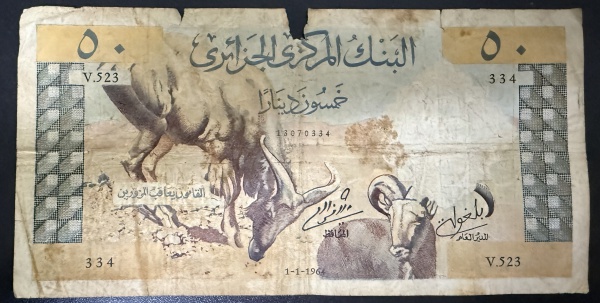 ٥٠ البنك المركزي الجزائري ٥٠
V.523 334
خمسون دينارا
13070334
القانون يعاقب المزورين
المحافظ
المدير العام
334 V.523
1-1-1964